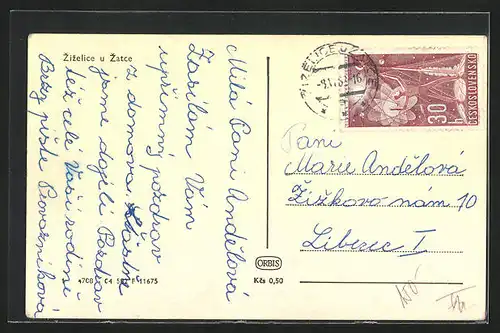 Žiželice u Žatce
Milá Paní Andělová
Zasílám Vám
upřímný pozdrav
z domova. Šťastně
jsme dojeli Pozdrav
též celé Vaší rodině
Brzy pište Pivorníková
4708 C4 58 F 11675
ORBIS
Kčs 0,50
ŽIŽELICE U
30 h
ČESKOSLOVENSKO
Paní
Marie Andělová
Žižkovo nám 10
Liberec I